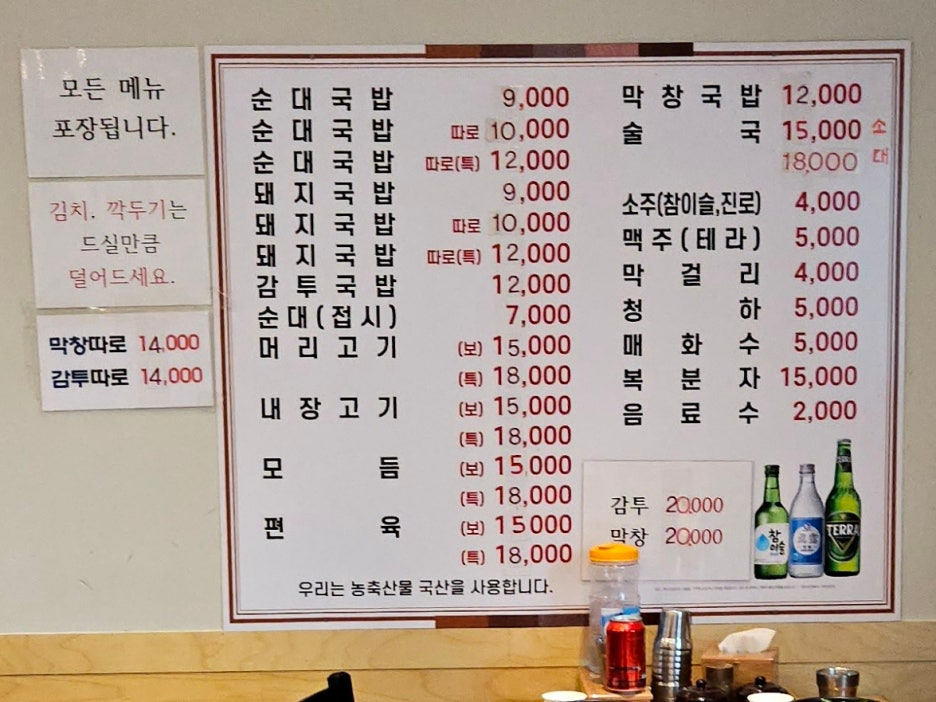 모든 메뉴
포장됩니다.
김치. 깍두기는
드실만큼
덜어드세요.
막창따로 14,000
감투따로 14,000
순대국밥 9,000
순대국밥 따로 10,000
순대국밥 따로(특) 12,000
돼지국밥 9,000
돼지국밥 따로 10,000
돼지국밥 따로(특) 12,000
감투국밥 12,000
순대(접시) 7,000
머리고기 (보) 15,000
(특) 18,000
내장고기 (보) 15,000
(특) 18,000
모듬 (보) 15,000
(특) 18,000
편육 (보) 15000
(특) 18,000
우리는 농축산물 국산을 사용합니다.
막창국밥 12,000
술국 15,000 소
18,000 대
소주(참이슬,진로) 4,000
맥주(테라) 5,000
막걸리 4,000
청하 5,000
매화수 5,000
복분자 15,000
음료수 2,000
감투 20,000
막창 20,000
참이슬
TERRA